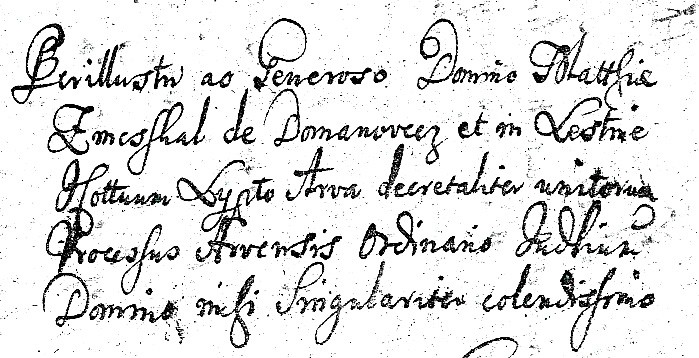 Perillustri ac Generoso Domino Matthiæ
Zmesskal de Domanovecz et in Lestine
Nottuum Lypto Arva decretaliter unitorum
Processus Arvensis Ordinario Judlium
Domino mihi Singulariter colendissimo